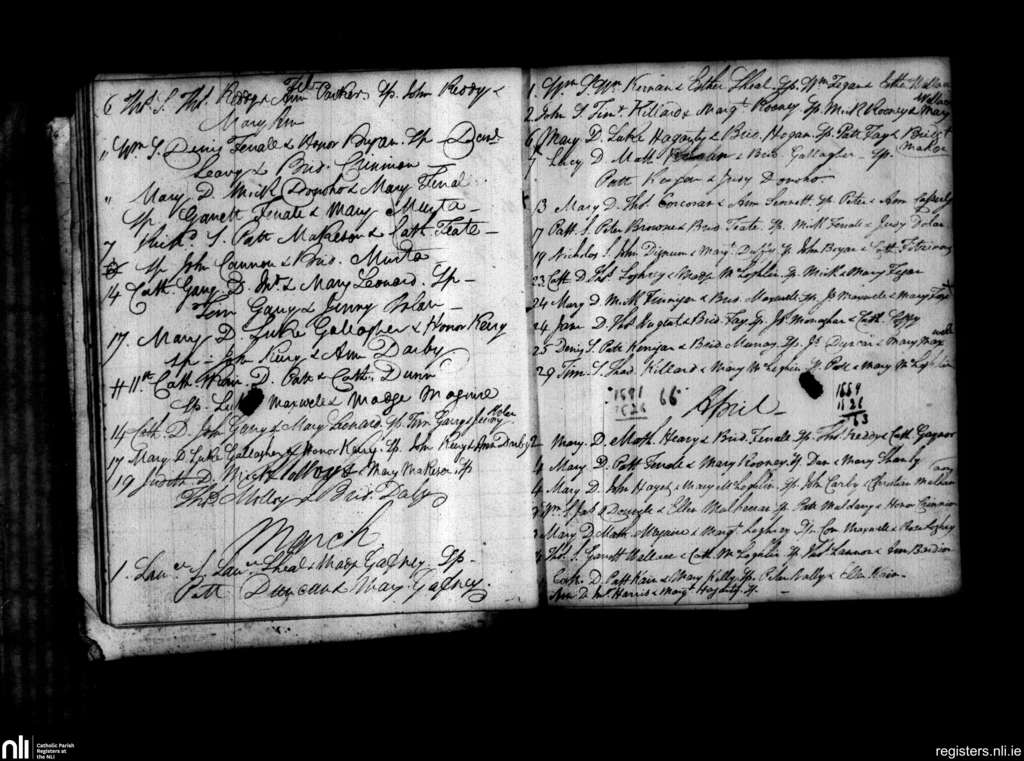 6 Thos. S. Thos. Reddy & Ann Parker Sp. John Reddy &
Mary
" Wm. S. Denis Fenale & Honor Bryan. Sp Denis
Leavy & Brid. Crinnion
" Mary D. Mick Donoho & Mary Fenal
Sp. Garrett Fenale & Mary Murta
7 Mick. S. Patt Makeson & Cath. Feate
Sp John Cannon & Brid. Murta
14 Cath. Garry D. Jno. & Mary Leonard. Sp
Tom Garry & Jenny Nolan
17. Mary D. Luke Gallagher & Honor Kerry
Sp John Kerry & Ann Darby
11th Cath. D. Patt & Cath. Dunn
Sp. Luke Maxwell & Madge Maguire
14 Cath. D. John Garry & Mary Leonard. Sp. Tim Garry & Jenny Nolan
17 Mary D Luke Gallagher & Honor Kerry. Sp. John Kerry & Ann Darby
19 Judith D. Mick Molloy & Mary Makeson. Sp
Thos. Molloy & Brid. Daly
March
1. Lawce. S. Lawce. Sheal & Madge Gafney. Sp
Patt Duncan & Mary Gafney.
1. Wm. S. Wm. Kernan & Esther Sheal. Sp. Wm Fegan & Esther Wallace
2 John S Timy. Killard & Margt. Rooney Sp. Mick Rooney & Mary Wallace
6 Mary D. Luke Hagarty & Brid. Hogan. Sp. Patt Fay & Bridt. Makee
7 Lucy D. Matt & Brid. Gallagher. Sp.
Patt Kenyan & Judy Donoho.
13 Mary D. Thos. Corcoran & Ann Sennett. Sp. Peter & Ann
17 Patt. S. Peter Browne & Brid. Feate. Sp. Mick Fenale & Judy Dolan
19 Nicholas S. John Dignum & Margt. Duffy. Sp John Bryan & Cath. Fitzsimons
23 Cath D. Thos. Loghrey & Madge McLoghlin. Sp. Mick & Mary Fegan
24 Mary D. Mick Finnigan & Brid. Maxwell. Sp. Js Maxwell & Mary
24 Jane D. Thos. Nugent & Brid. Fay. Sp. Js. Monaghan & Cath.
25 Denis S. Patt Kenigan & Brid. Murray. Sp. Js. Duncan & Mary
29 Tim. S. Thad. Killard & Mary McLoghlin Sp. Patt & Mary McLoghlin
1591 66 1589
1526 1526
63
April
2 Mary. D. Math. Heary & Brid. Fenale. Sp. Thos Freddy & Cath Gaynor
4 Mary D. Patt Fenale & Mary Rooney. Sp. Dan & Mary Shanly
4 Mary D. John Hayes & Mary McLoghlin. Sp. John Corby & Christian
Wm. S. Jas. Dowdle & Ellen Mulhevan Sp. Patt Muldary & Honor Crinnion
Mary D. Math. Maguire & Margt. Loghrey Sp. Con Maxwell & Rose Loghrey
Thos. S. Garrett Wallace & Cath McLoghlin Sp. Thos. Lannon & Ann
Cath. D. Patt Kain & Mary Kelly. Sp. Peter Nally & Ellen Kain.
Ann D. Wm. Harris & Margt. Sp.
nli
Catholic Parish
Registers at
the NLI
registers.nli.ie